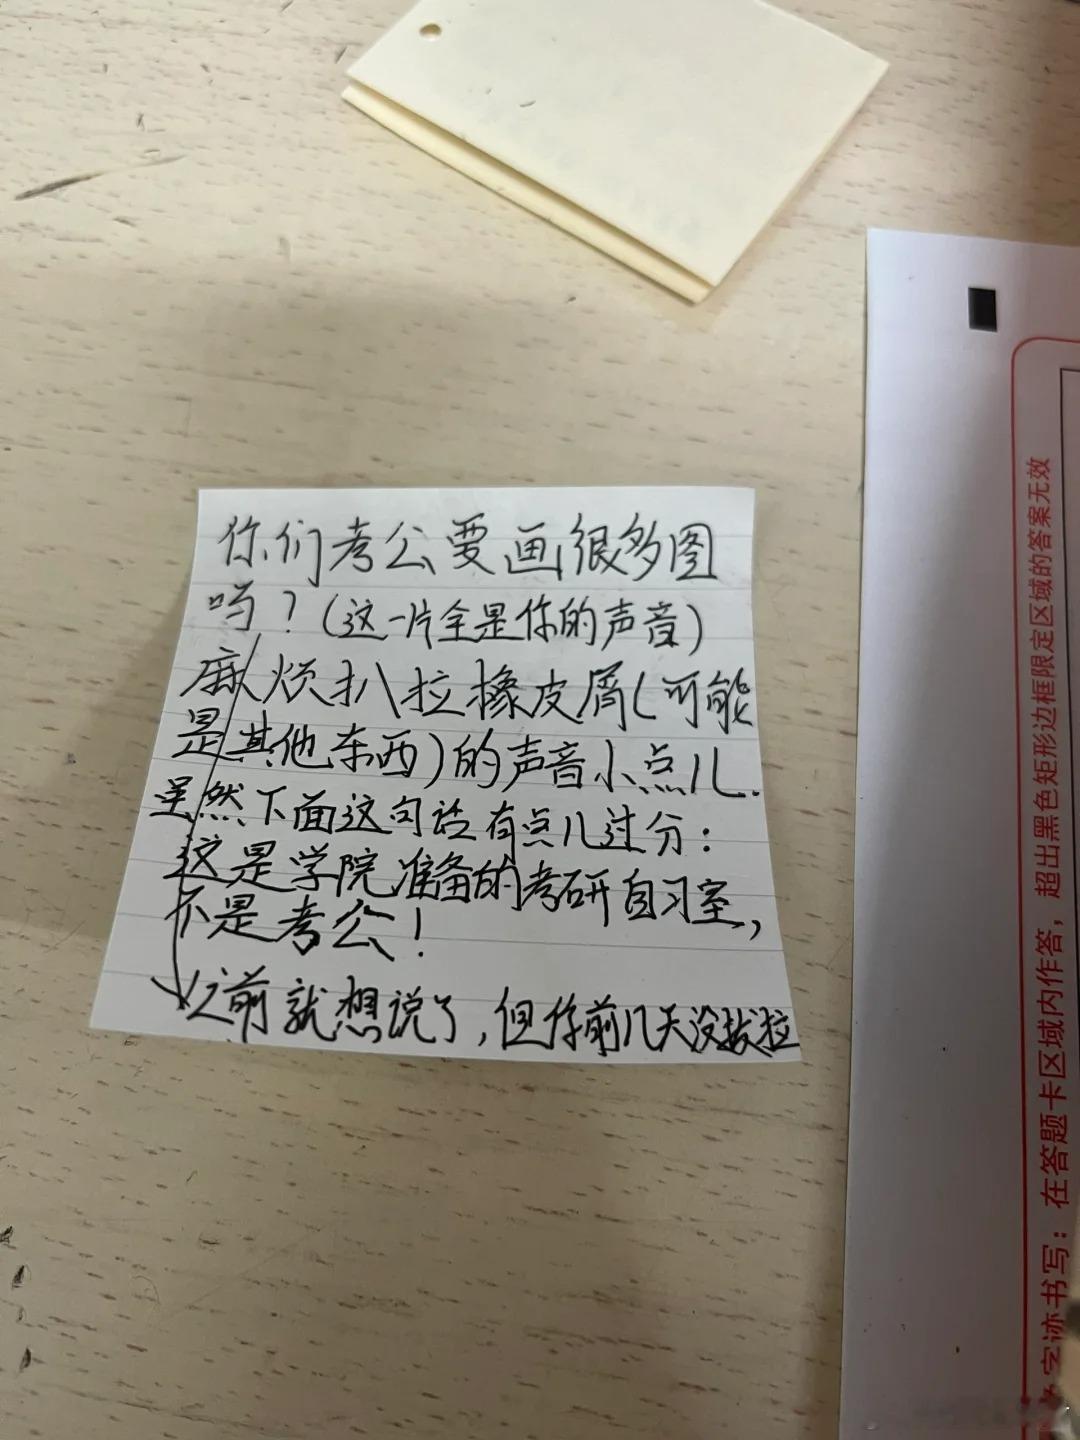 你们考公要画很多图
吗？（这一片全是你的声音）
麻烦扒拉橡皮屑（可能
是其他东西）的声音小点儿.
虽然下面这句话有点儿过分：
这是学院准备的考研自习室，
不是考公！
之前就想说了，但你前几天没拔拉
在答题卡区域内作答，超出黑色矩形边框限定区域的答案无效
字迹书写：